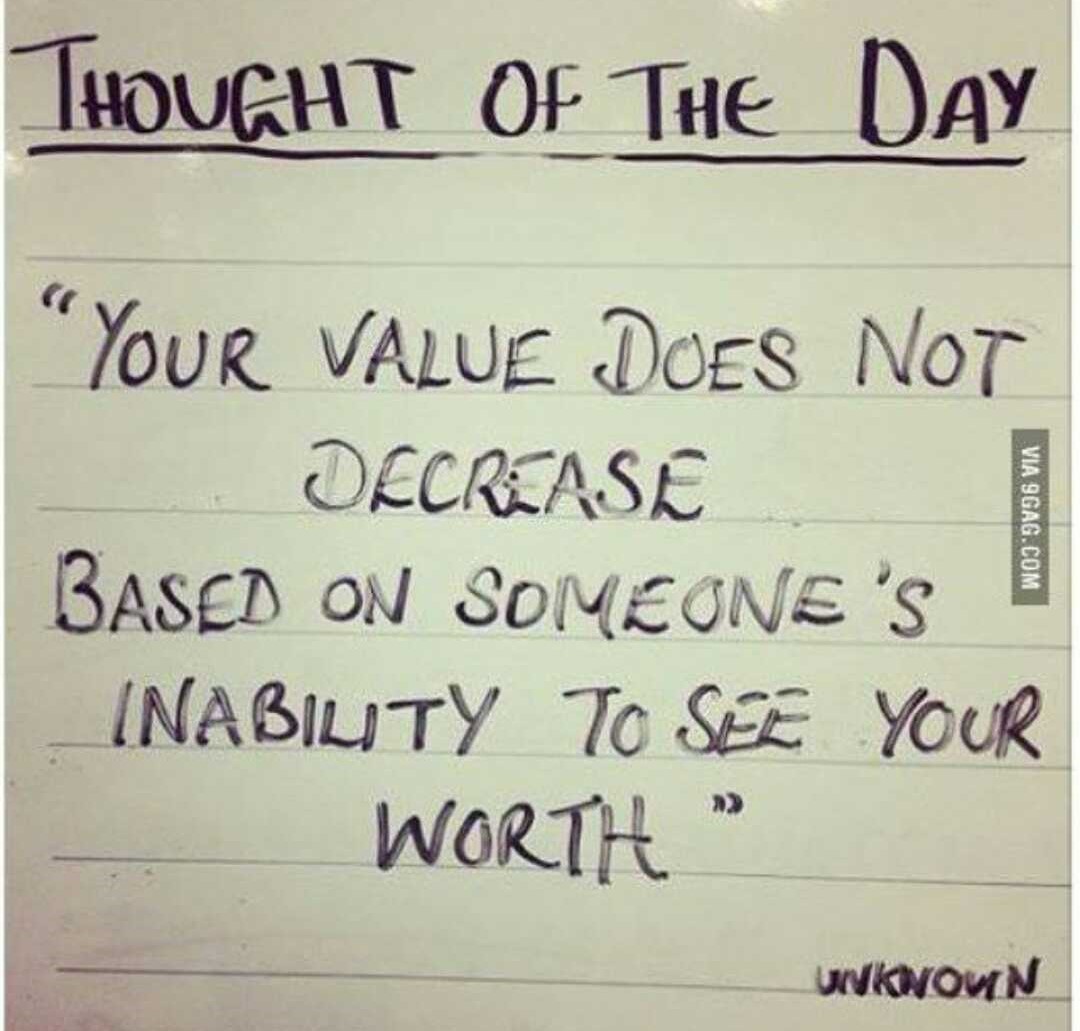 THOUGHT OF THE DAY
"YOUR VALUE DOES NOT
DECREASE
BASED ON SOMEONE'S
INABILITY TO SEE YOUR
WORTH"
UNKNOWN
VIA 9GAG.COM